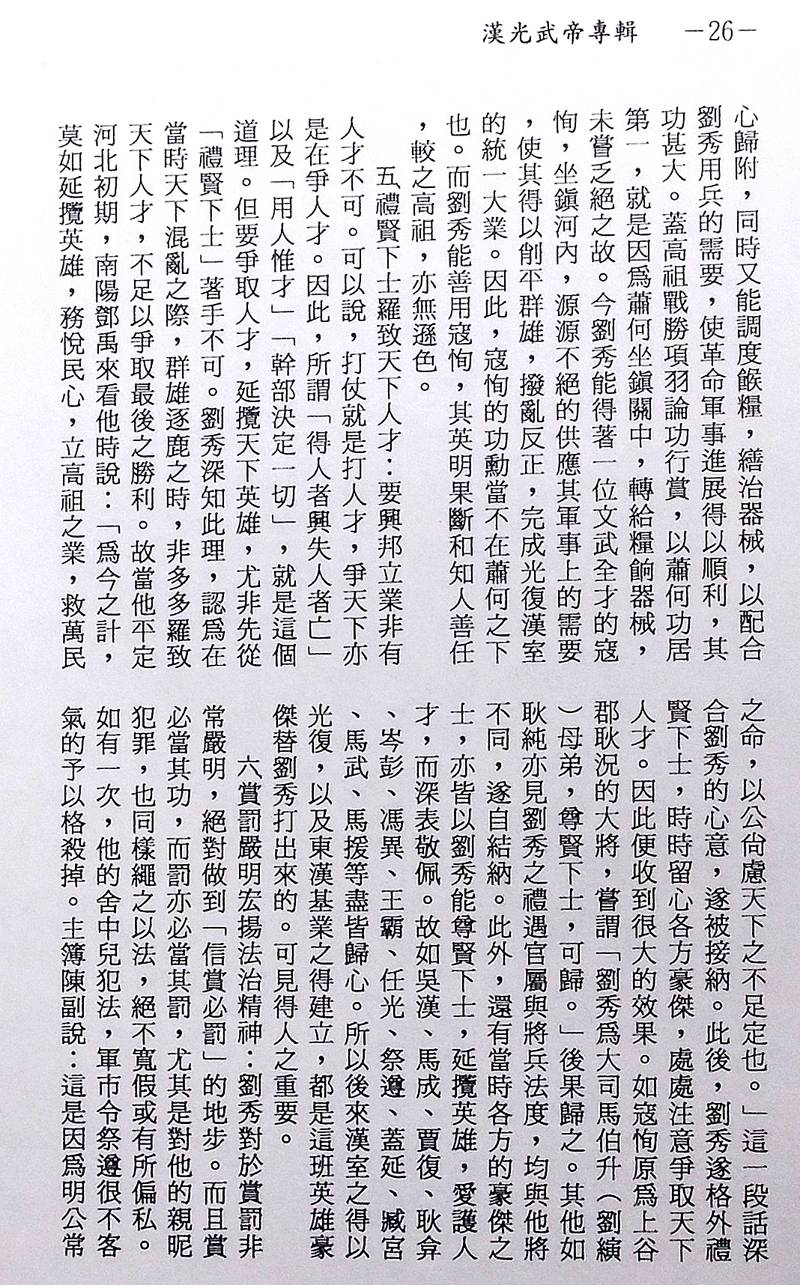 漢光武帝專輯 —26—
心歸附，同時又能調度餱糧，繕治器械，以配合
劉秀用兵的需要，使革命軍事進展得以順利，其
功甚大。蓋高祖戰勝項羽論功行賞，以蕭何功居
第一，就是因爲蕭何坐鎭關中，轉給糧餉器械，
未嘗乏絕之故。今劉秀能得著一位文武全才的寇
恂，坐鎭河內，源源不絕的供應其軍事上的需要
，使其得以削平群雄，撥亂反正，完成光復漢室
的統一大業。因此，寇恂的功勳當不在蕭何之下
也。而劉秀能善用寇恂，其英明果斷和知人善任
，較之高祖，亦無遜色。
五禮賢下士羅致天下人才：要興邦立業非有
人才不可。可以說，打仗就是打人才，爭天下亦
是在爭人才。因此，所謂「得人者興失人者亡」
以及「用人惟才」「幹部決定一切」，就是這個
道理。但要爭取人才，延攬天下英雄，尤非先從
「禮賢下士」著手不可。劉秀深知此理，認爲在
當時天下混亂之際，群雄逐鹿之時，非多多羅致
天下人才，不足以爭取最後之勝利。故當他平定
河北初期，南陽鄧禹來看他時說：「爲今之計，
莫如延攬英雄，務悅民心，立高祖之業，救萬民
之命，以公尙慮天下之不足定也。」這一段話深
合劉秀的心意，遂被接納。此後，劉秀遂格外禮
賢下士，時時留心各方豪傑，處處注意爭取天下
人才。因此便收到很大的效果。如寇恂原爲上谷
郡耿況的大將，嘗謂「劉秀爲大司馬伯升（劉縯
）母弟，尊賢下士，可歸。」後果歸之。其他如
耿純亦見劉秀之禮遇官屬與將兵法度，均與他將
不同，遂自結納。此外，還有當時各方的豪傑之
士，亦皆以劉秀能尊賢下士，延攬英雄，愛護人
才，而深表敬佩。故如吳漢、馬成、賈復、耿弇
、岑彭、馮異、王霸、任光、祭遵、蓋延、臧宮
、馬武、馬援等盡皆歸心。所以後來漢室之得以
光復，以及東漢基業之得建立，都是這班英雄豪
傑替劉秀打出來的。可見得人之重要。
六賞罰嚴明宏揚法治精神：劉秀對於賞罰非
常嚴明，絕對做到「信賞必罰」的地步。而且賞
必當其功，而罰亦必當其罰，尤其是對他的親昵
犯罪，也同樣繩之以法，絕不寬假或有所偏私。
如有一次，他的舍中兒犯法，軍市令祭遵很不客
氣的予以格殺掉。主簿陳副說：這是因爲明公常